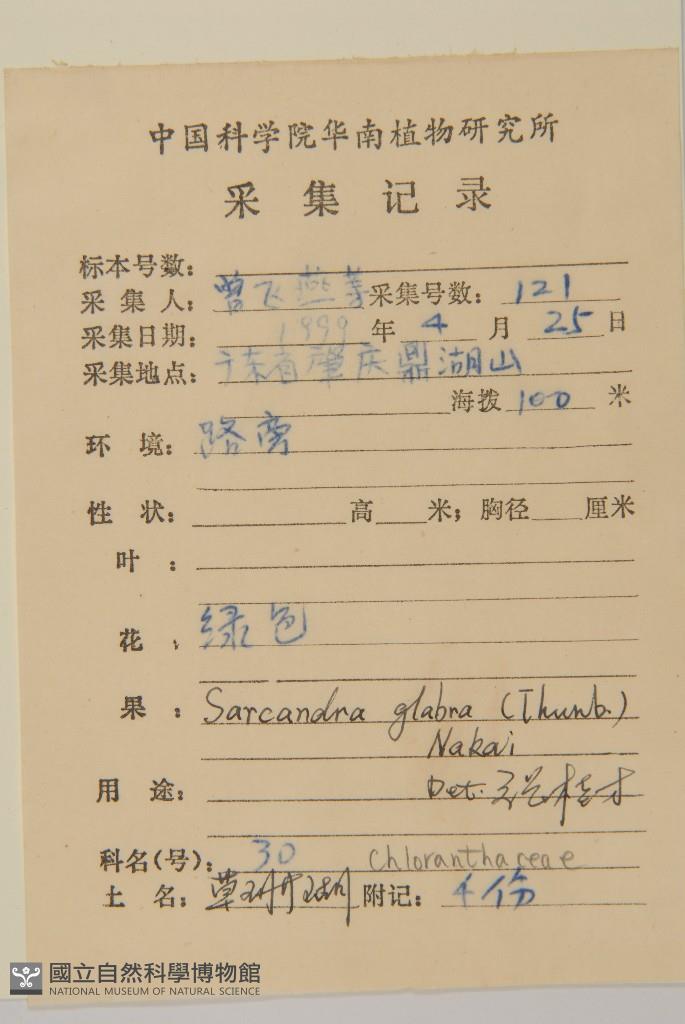 中国科学院华南植物研究所
采集记录
标本号数:
采集人: 曾飞燕等 采集号数: 121
采集日期: 1999 年 4 月 25 日
采集地点: 广东省肇庆鼎湖山
海拨 100 米
环境: 路旁
性状: 高 米; 胸径 厘米
叶:
花: 绿色
果: Sarcandra glabra (Thunb.)
Nakai
用途: Det.
科名(号): 30 Chloranthaceae
土名: 草珊瑚 附记: 4份
國立自然科學博物館
NATIONAL MUSEUM OF NATURAL SCIENCE